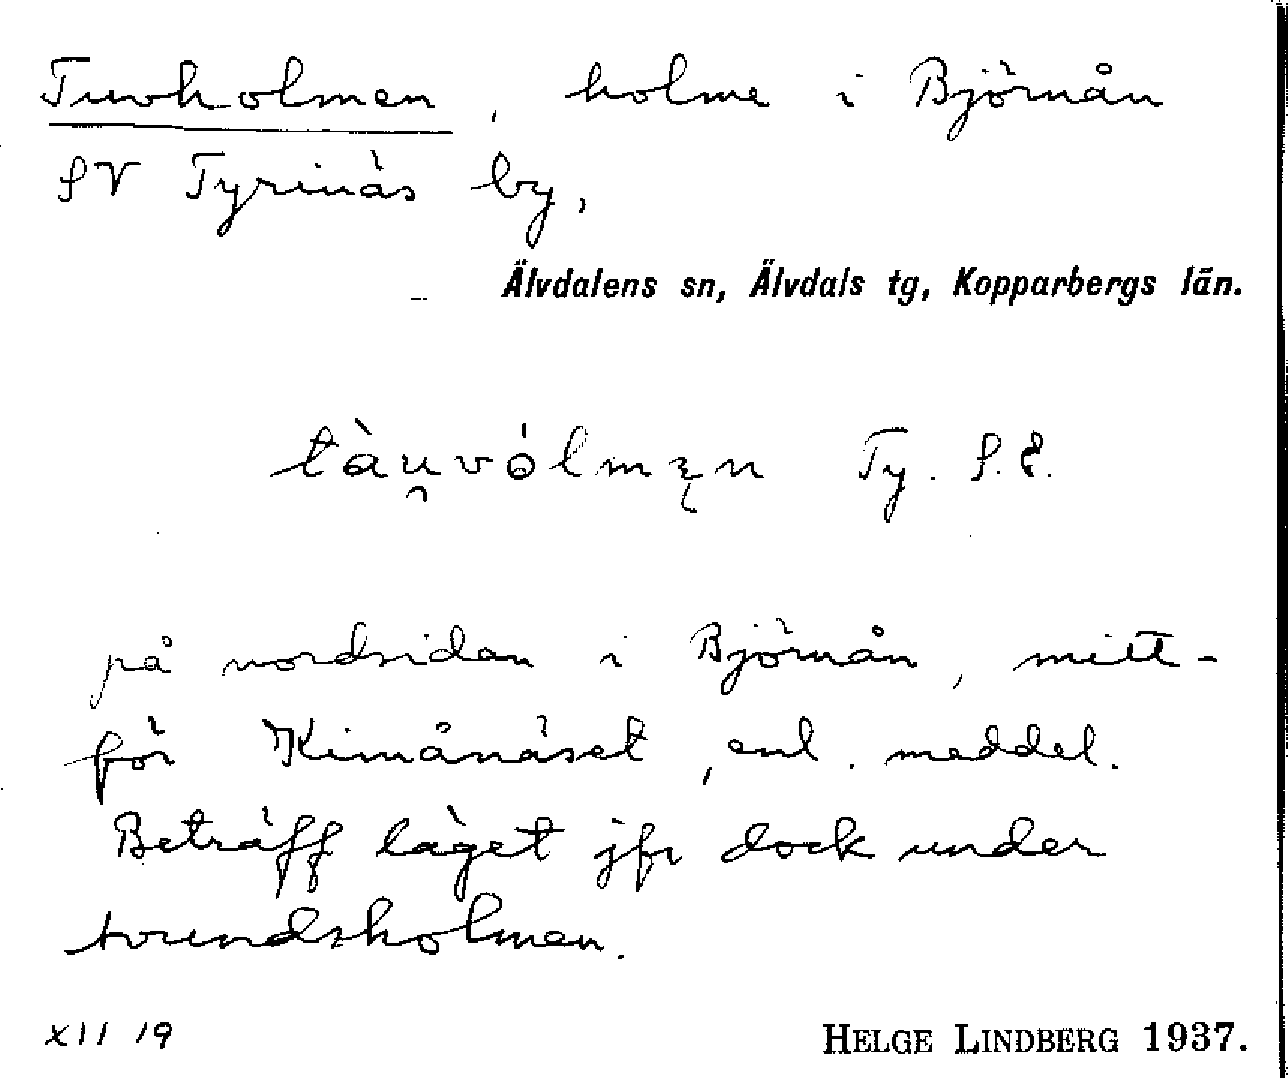 Tuvholmen, holme i Björnån
SV Tyrinäs by,
Älvdalens sn, Älvdals tg, Kopparbergs län.
Ty. S.E.
på nordsidan i Björnån, mitt-
för Kimånäset, enl. meddel.
Beträff läget jfr dock under
HELGE LINDBERG 1937.
XII 19